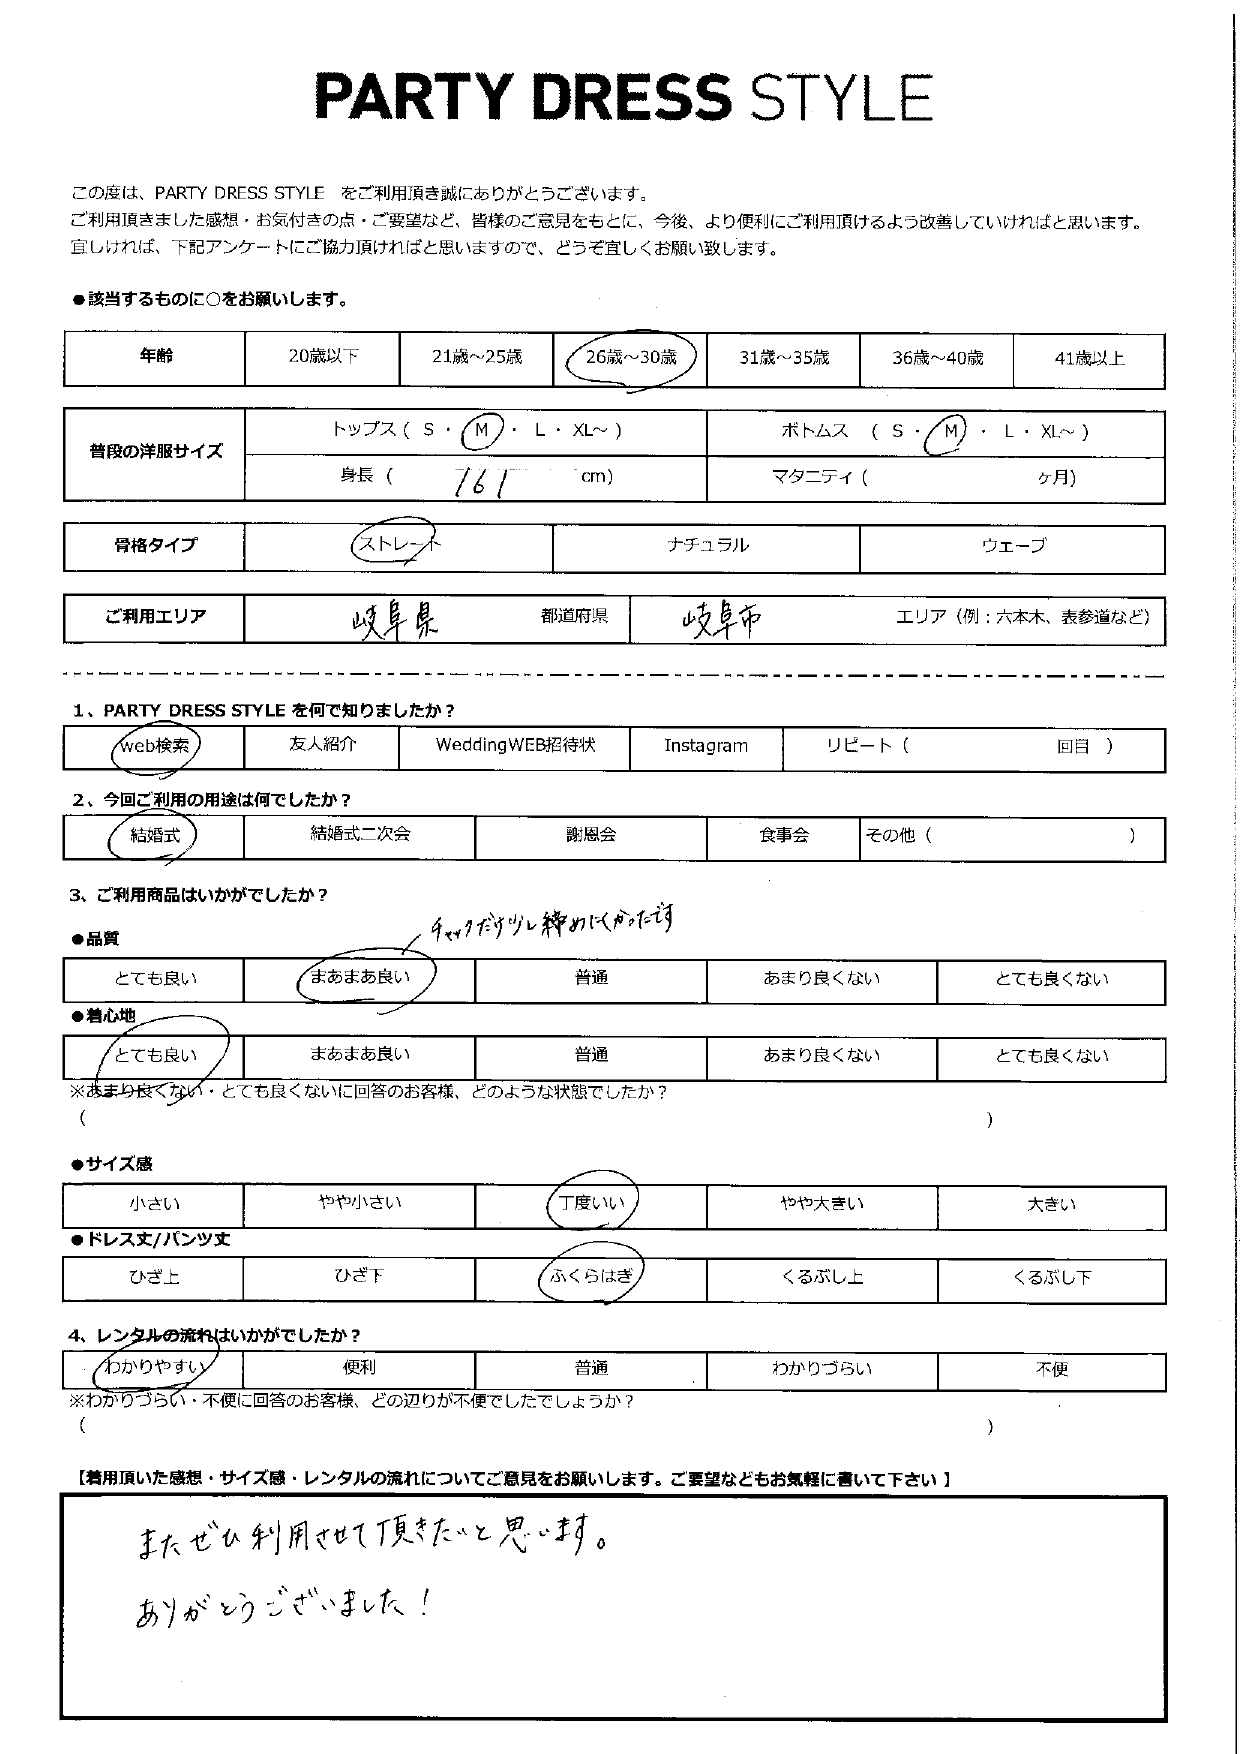 PARTY DRESS STYLE
この度は、PARTY DRESS STYLE をご利用頂き誠にありがとうございます。
ご利用頂きました感想・お気付きの点・ご要望など、皆様のご意見をもとに、今後、より便利にご利用頂けるよう改善していければと思います。
宜しければ、下記アンケートにご協力頂ければと思いますので、どうぞ宜しくお願い致します。
●該当するものに○をお願いします。
年齢 20歳以下 21歳～25歳 26歳～30歳 31歳～35歳 36歳～40歳 41歳以上
普段の洋服サイズ
トップス ( S ・ M ・ L ・ XL～ ) ボトムス ( S ・ M ・ L ・ XL～ )
身長 ( 161 cm) マタニティ ( ヶ月)
骨格タイプ ストレート ナチュラル ウェーブ
ご利用エリア 岐阜県 都道府県 岐阜市 エリア（例：六本木、表参道など）
1、PARTY DRESS STYLE を何で知りましたか？
web検索 友人紹介 WeddingWEB招待状 Instagram リピート ( 回目 )
2、今回ご利用の用途は何でしたか？
結婚式 結婚式二次会 謝恩会 食事会 その他 ( )
3、ご利用商品はいかがでしたか？
チャックだけ少し締めにくかったです
●品質
とても良い まあまあ良い 普通 あまり良くない とても良くない
●着心地
とても良い まあまあ良い 普通 あまり良くない とても良くない
※あまり良くない・とても良くないに回答のお客様、どのような状態でしたか？
( )
●サイズ感
小さい やや小さい 丁度いい やや大きい 大きい
●ドレス丈/パンツ丈
ひざ上 ひざ下 ふくらはぎ くるぶし上 くるぶし下
4、レンタルの流れはいかがでしたか？
わかりやすい 便利 普通 わかりづらい 不便
※わかりづらい・不便に回答のお客様、どの辺りが不便でしたでしょうか？
( )
【着用頂いた感想・サイズ感・レンタルの流れについてご意見をお願いします。ご要望などもお気軽に書いて下さい 】
またぜひ利用させて頂きたいと思います。
ありがとうございました！